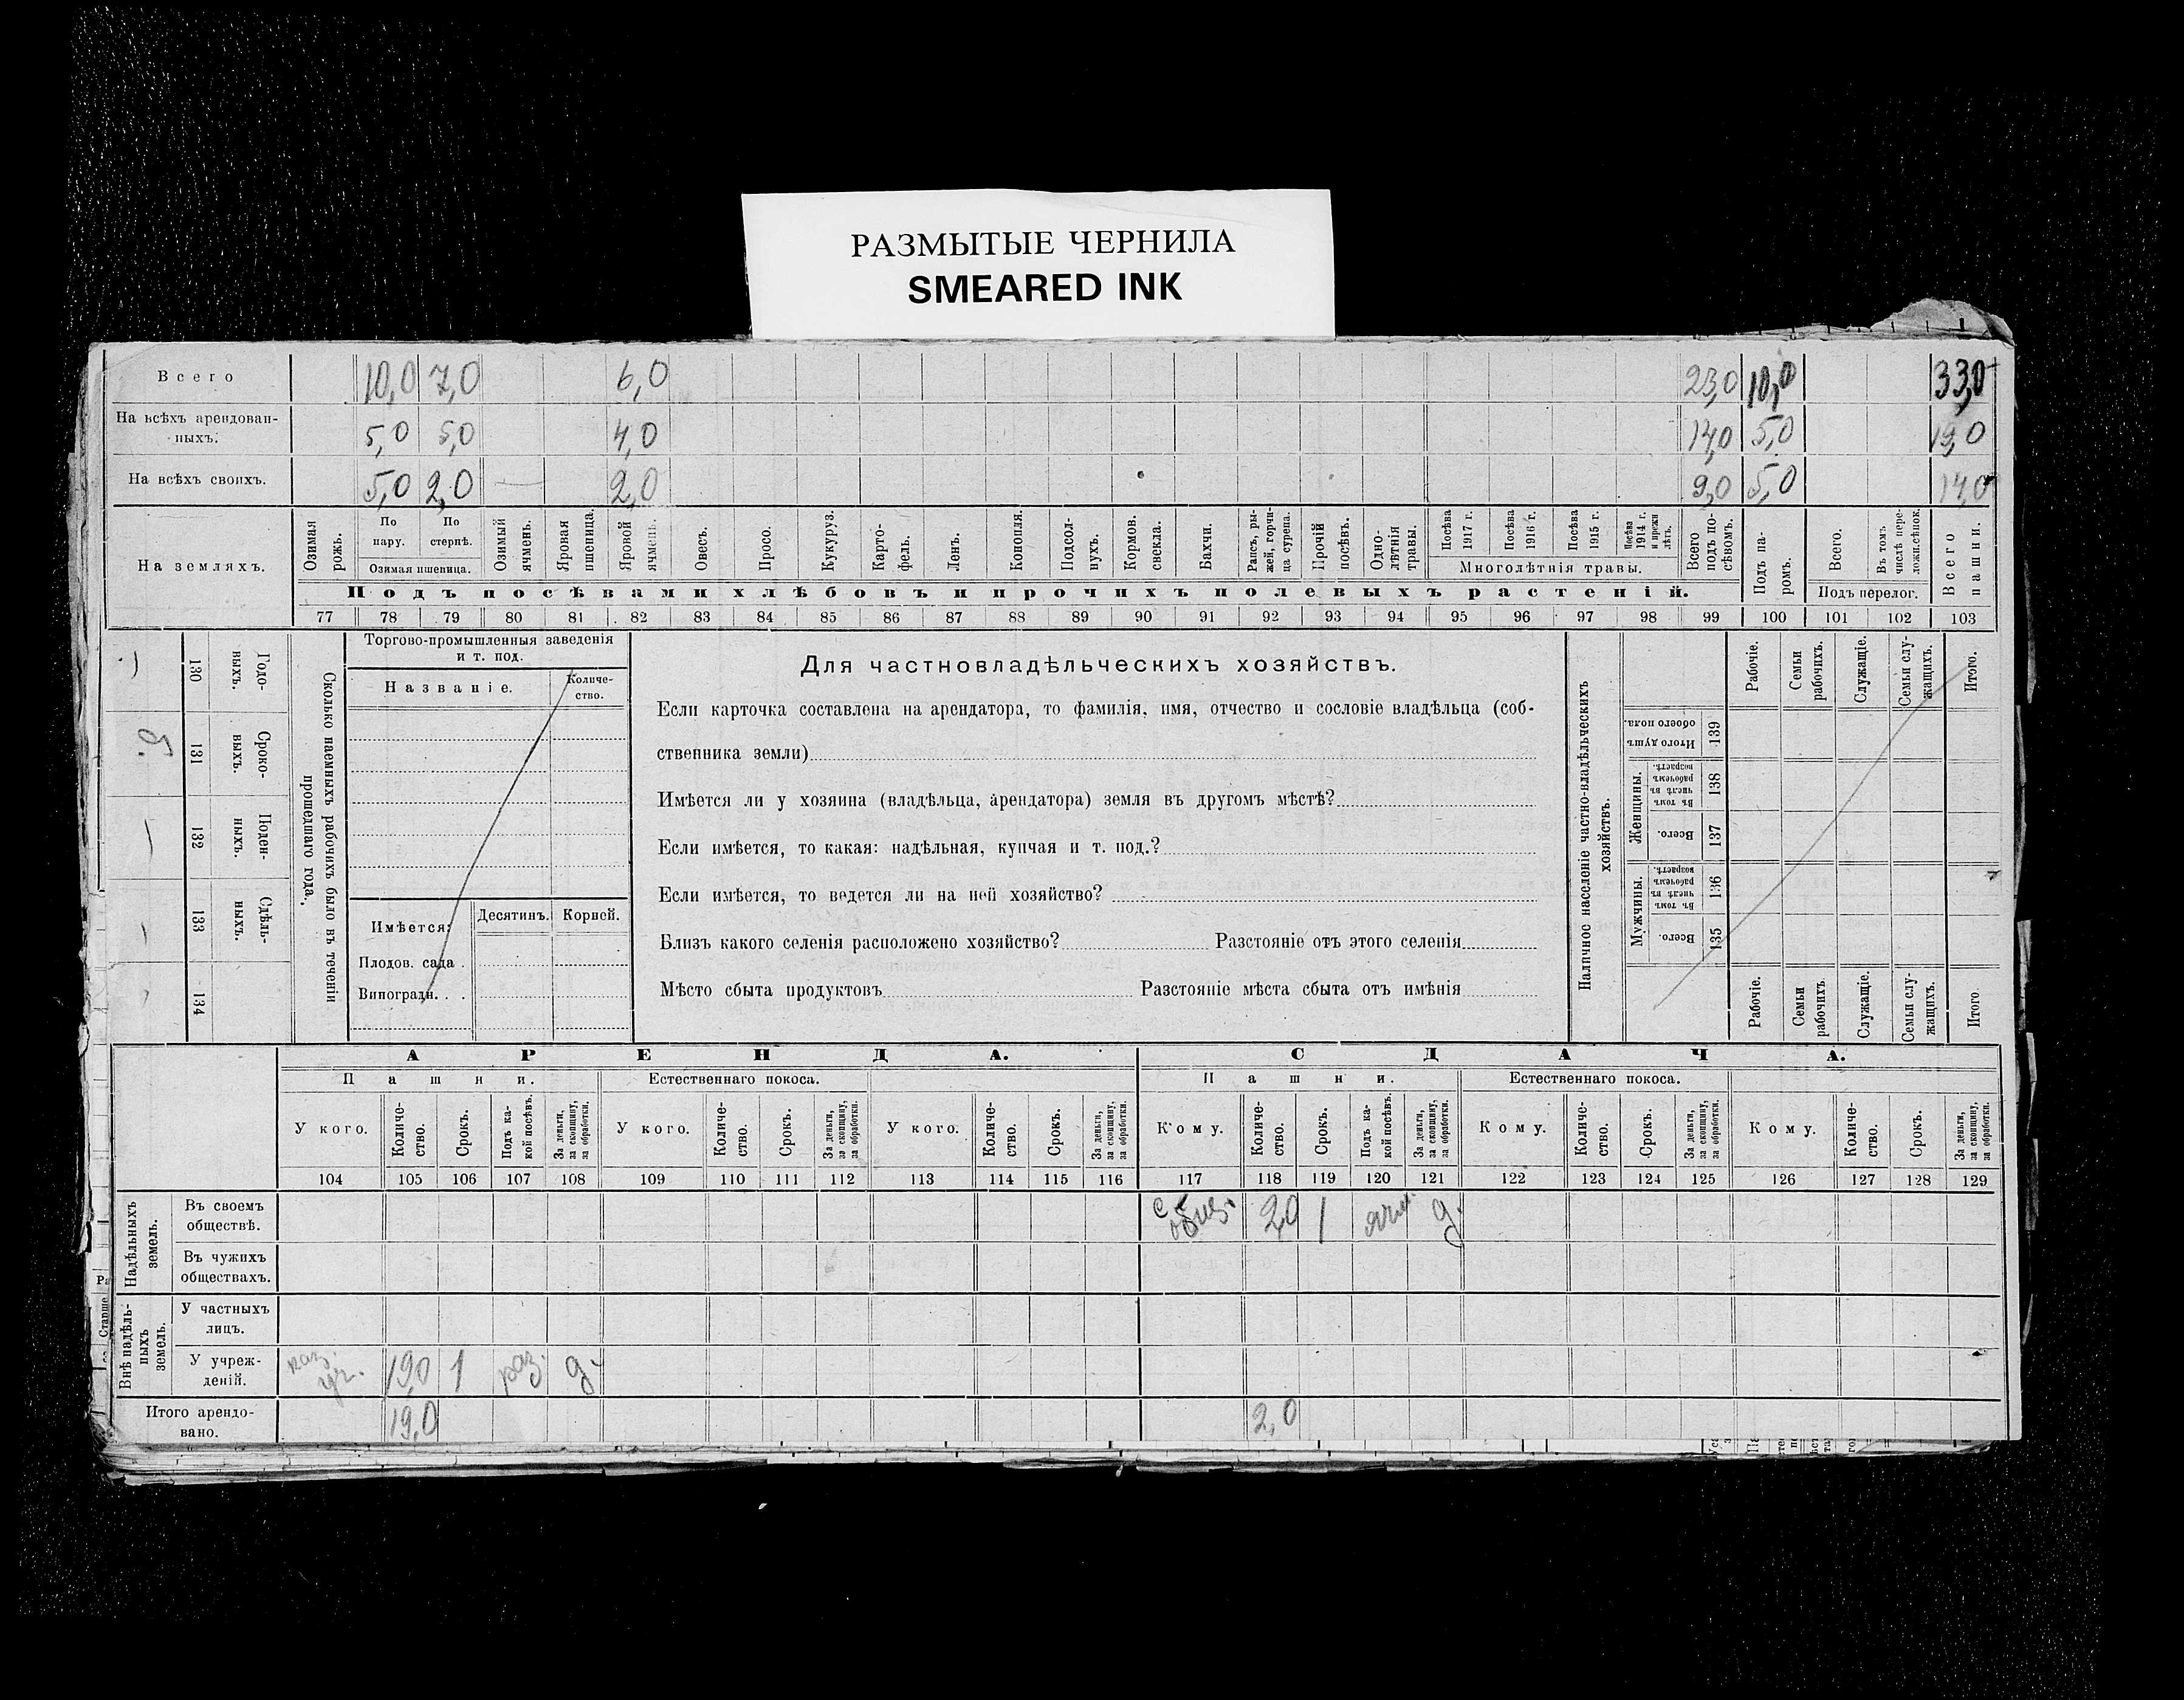 РАЗМЫТЫЕ ЧЕРНИЛА
SMEARED INK
Всего 10,0 7,0 6,0 23,0 10,0 33,0
На всѣхъ арендован-
ныхъ. 5,0 5,0 4,0 14,0 5,0 19,0
На всѣхъ своихъ. 5,0 2,0 — 2,0 9,0 5,0 14,0
На земляхъ.
Озимая рожь.
По пару.
По стернѣ.
Озимая пшеница.
Озимый ячмень.
Яровая пшеница.
Яровой ячмень.
Овесъ.
Просо.
Кукуруз.
Карто-
фель.
Ленъ.
Конопля.
Подсол-
нухъ.
Кормов. свекла.
Бахчи.
Рапсъ, ры-
жей, горчи-
ца сурепа.
Прочій посѣвъ.
Одно-
лѣтнія травы.
Посѣва 1917 г.
Посѣва 1916 г.
Посѣва 1915 г.
Посѣва 1914 г. и прежн лѣтъ.
Многолѣтнія травы.
Всего подъ по-
сѣвомъ.
Подъ па-
ромъ.
Всего.
Въ томъ числѣ пере-
ложн.сѣнок.
Подъ перелог.
Всего пашни.
Подъ посѣвами хлѣбовъ и прочихъ полевыхъ растеній.
77 78 79 80 81 82 83 84 85 86 87 88 89 90 91 92 93 94 95 96 97 98 99 100 101 102 103
130 Годо-
выхъ.
131 Сроко-
выхъ.
132 Поден-
ныхъ.
133 Сдѣль-
ныхъ.
134
Сколько наемныхъ рабочихъ было въ теченіи
прошедшаго года.
Торгово-промышленныя заведенія
и т. под.
Названіе.
Количе-
ство.
Имѣется:
Десятинъ.
Корней.
Плодов. сада .
Виноградн. . .
Для частновладѣльческихъ хозяйствъ.
Если карточка составлена на арендатора, то фамилія, имя, отчество и сословіе владѣльца (соб-
ственника земли)
Имѣется ли у хозяина (владѣльца, арендатора) земля въ другомъ мѣстѣ?
Если имѣется, то какая: надѣльная, купчая и т. под.?
Если имѣется, то ведется ли на ней хозяйство?
Близъ какого селенія расположено хозяйство? Разстояніе отъ этого селенія
Мѣсто сбыта продуктовъ Разстояніе мѣста сбыта отъ имѣнія
Наличное населеніе частно-владѣльческихъ
хозяйствъ.
Рабочіе.
Семьи рабочихъ.
Служащіе.
Семьи слу-
жащихъ.
Итого.
Итого душ обоего пола. 139
Женщины.
Въ томъ числѣ въ рабочемъ возрастѣ. 138
Всего. 137
Мужчины.
Въ томъ числѣ въ рабочемъ возрастѣ. 136
Всего. 135
Рабочіе.
Семьи рабочихъ
Служащіе.
Семьи слу-
жащихъ.
Итого
АРЕНДА. СДАЧА.
Пашни. Естественнаго покоса. Пашни. Естественнаго покоса.
У кого.
Количе-
ство.
Срокъ.
Подъ ка-
кой посѣвъ.
За деньги, за скопщину, за обработки.
У кого.
Количе-
ство.
Срокъ.
За деньги, за скопщину, за обработки.
У кого.
Количе-
ство.
Срокъ.
За деньги, за скопщину, за обработки.
Кому.
Количе-
ство.
Срокъ.
Подъ ка-
кой посѣвъ.
За деньги, за скопщину, за обработки.
Кому.
Количе-
ство.
Срокъ.
За деньги, за скопщину, за обработки.
Кому.
Количе-
ство.
Срокъ.
За деньги, за скопщину, за обработки.
104 105 106 107 108 109 110 111 112 113 114 115 116 117 118 119 120 121 122 123 124 125 126 127 128 129
Надѣльныхъ земель.
Въ своемъ
обществѣ. 2,0 1 ячм. д.
Въ чужихъ
обществахъ.
Внѣ надѣль-
ныхъ земель.
У частныхъ
лицъ.
У учреж-
деній. 19,0 1 раз. д.
Итого арендо-
вано. 19,0 2,0